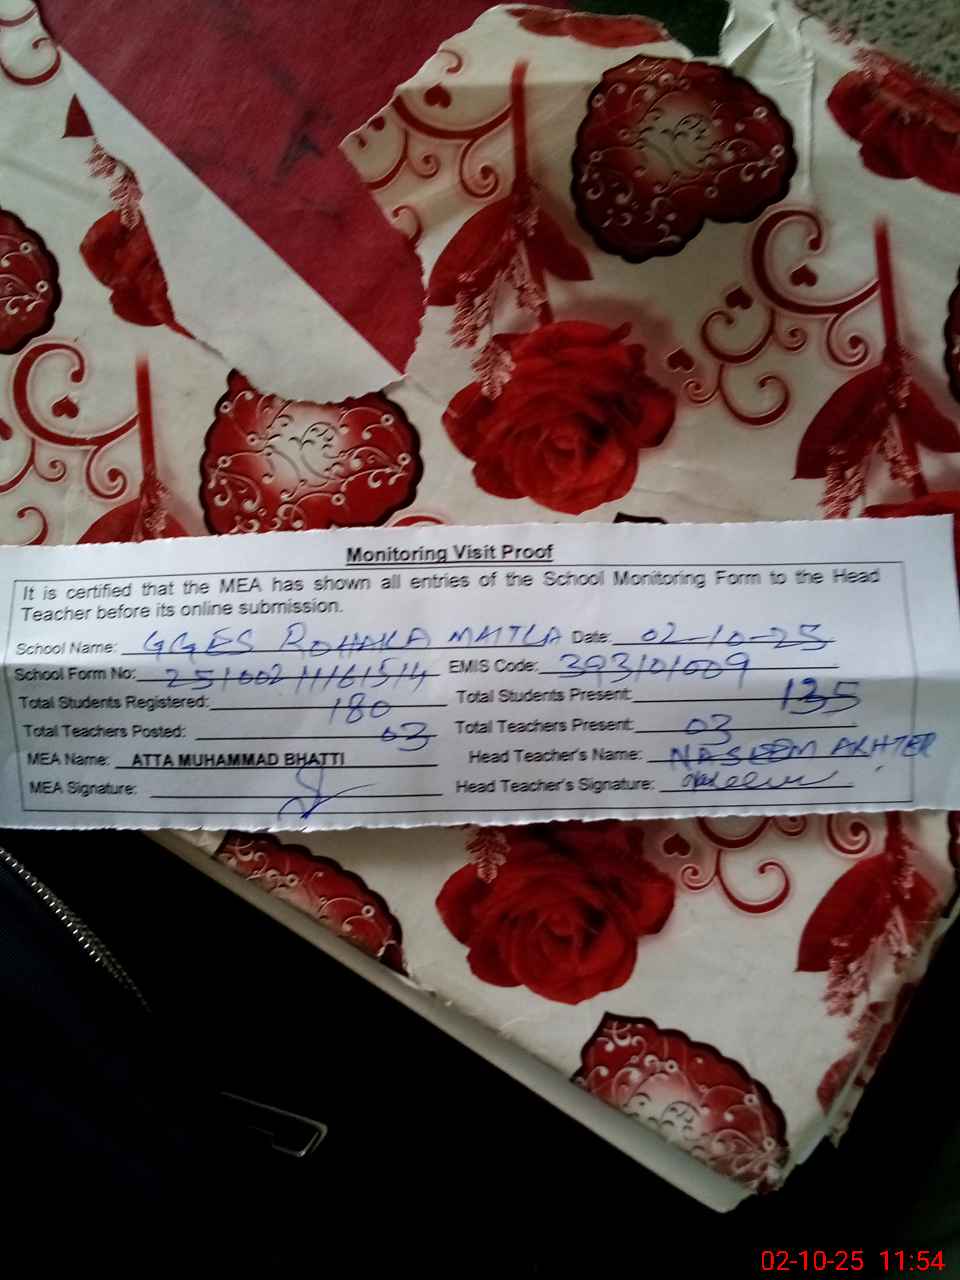 Monitoring Visit Proof
It is certified that the MEA has shown all entries of the School Monitoring Form to the Head
Teacher before its online submission.
School Name: GGES ROHAKA MAITLA Date: 02-10-25
School Form No: EMIS Code: 393101009
Total Students Registered: 180 Total Students Present: 135
Total Teachers Posted: 03 Total Teachers Present: 03
MEA Name: ATTA MUHAMMAD BHATTI Head Teacher's Name: NASEEM AKHTER
MEA Signature: Head Teacher's Signature: Naseem
02-10-25 11:54